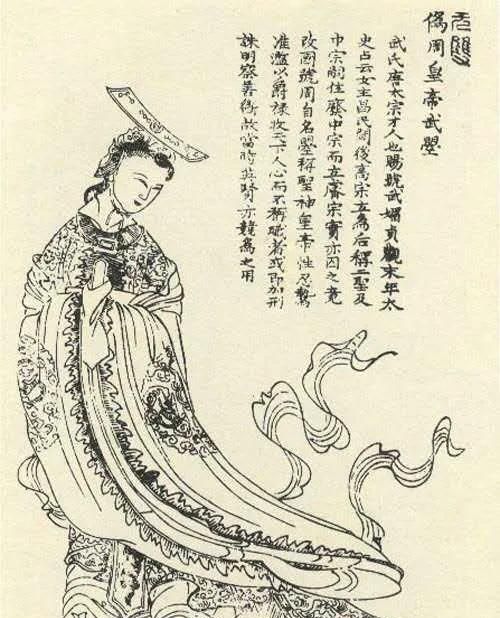 无雙
僞周皇帝武曌
武氏唐太宗才人也賜號武媚貞觀末年太
史占云女主昌民間後高宗立為后稱二聖及
中宗嗣位廢中宗而立睿宗實亦囚之竟
改國號周自名曌稱聖神皇帝性忍鷙
雖濫以爵祿收天下人心而不稱職者或即加刑
誅明察善斷故當時英賢亦競為之用